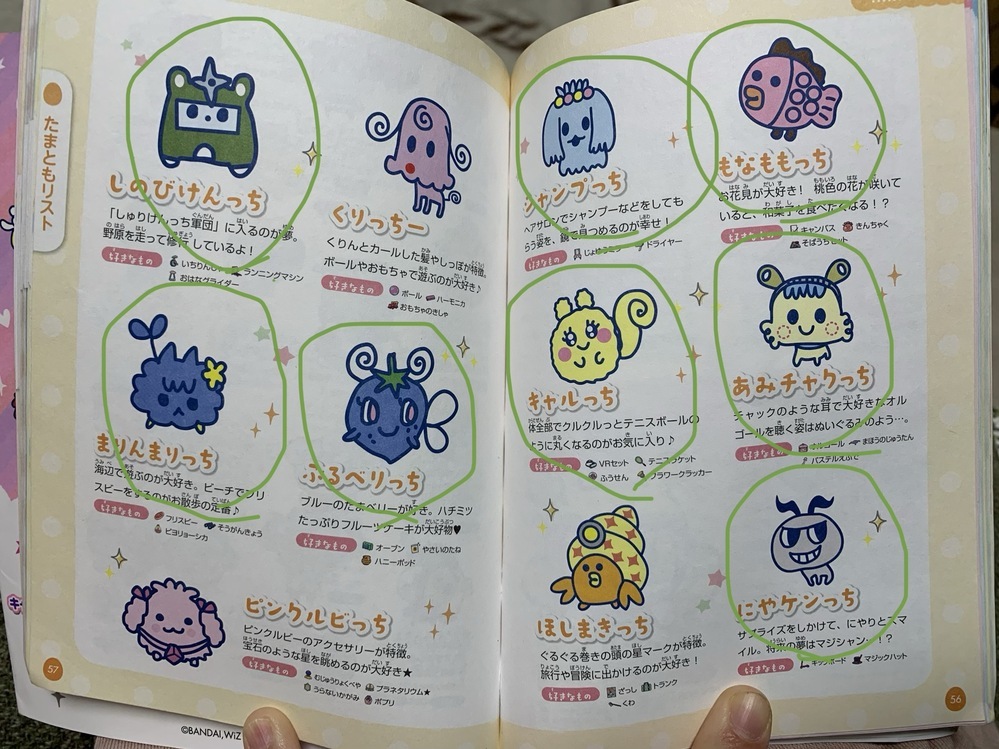 たまともリスト
しのびけんっち
「しゅりけんっち軍団」に入るのが夢。
野原を走って修行しているよ!
好きなもの
ランニングマシン
おはなグライダー
くりっちー
くりんとカールした髪やしっぽが特徴。
ボールやおもちゃで遊ぶのが大好き♪
好きなもの ボール ハーモニカ
おもちゃのきしゃ
まりんまりっち
海辺で遊ぶのが大好き。ビーチでフリ
スビーをするのがお散歩の定番♪
好きなもの フリスビー そうがんきょう
ピヨリョーシカ
ぶるべりっち
ブルーのたまベリーが好き。ハチミツ
たっぷりフルーツケーキが大好物♥
好きなもの オーブン やさいのたね
ハニーポッド
ピンクルビっち
ピンクルビーのアクセサリーが特徴。
宝石のような星を眺めるのが大好き★
好きなもの むじゅうりょくべや プラネタリウム★
うらないかがみ ポプリ
57
©BANDAI,WiZ
シャンプっち
ヘアサロンでシャンプーなどをしても
らう姿を、鏡で見つめるのが幸せ!
好きなもの ドライヤー
もなももっち
お花見が大好き! 桃色の花が咲いて
いると、和菓子を食べたくなる!?
好きなもの キャンバス きんちゃく
そばうちセット
キャルっち
体全部でクルクルっとテニスボールの
ように丸くなるのがお気に入り♪
好きなもの VRセット テニスラケット
ふうせん フラワークラッカー
あみチャクっち
チャックのような耳で大好きなオル
ゴールを聴く姿はぬいぐるみのよう…
好きなもの オルゴール まほうのじゅうたん
パステルえふで
ほしまきっち
ぐるぐる巻きの頭の星マークが特徴。
旅行や冒険に出かけるのが大好き!
好きなもの ざっし トランク
くわ
にやケンっち
サプライズをしかけて、にやりとスマ
イル。将来の夢はマジシャン…!?
好きなもの キックボード マジックハット
56